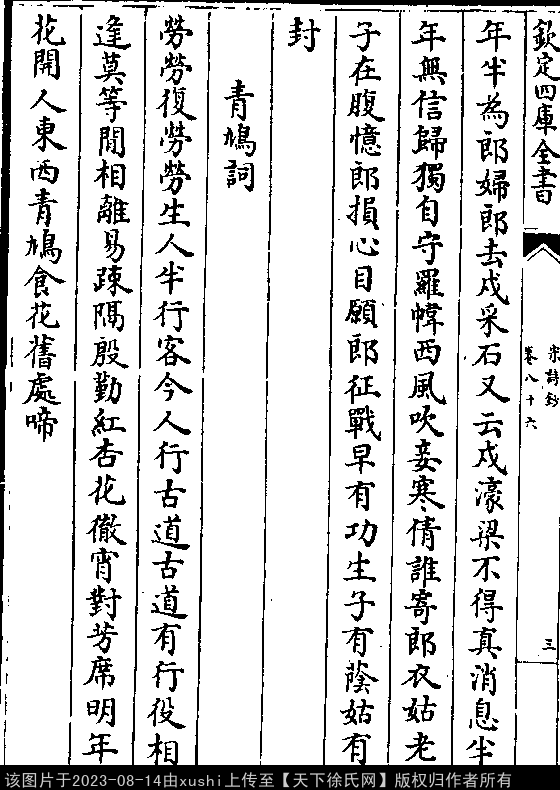 欽定四庫全書
宋詩鈔
卷八十六
三
年半為郎婦郎去戍采石又云戍濠梁不得真消息半
年無信歸獨自守羅幃西風吹妾寒倩誰寄郎衣姑老
子在腹憶郎損心目願郎征戰早有功生子有蔭姑有
封
青鳩詞
勞勞復勞勞生人半行客今人行古道古道有行役相
逢莫等閒相離易疎隔殷勤紅杏花徹宵對芳席明年
花開人東西青鳩食花舊處啼
该图片于2023-08-14由xushi上传至【天下徐氏网】版权归作者所有